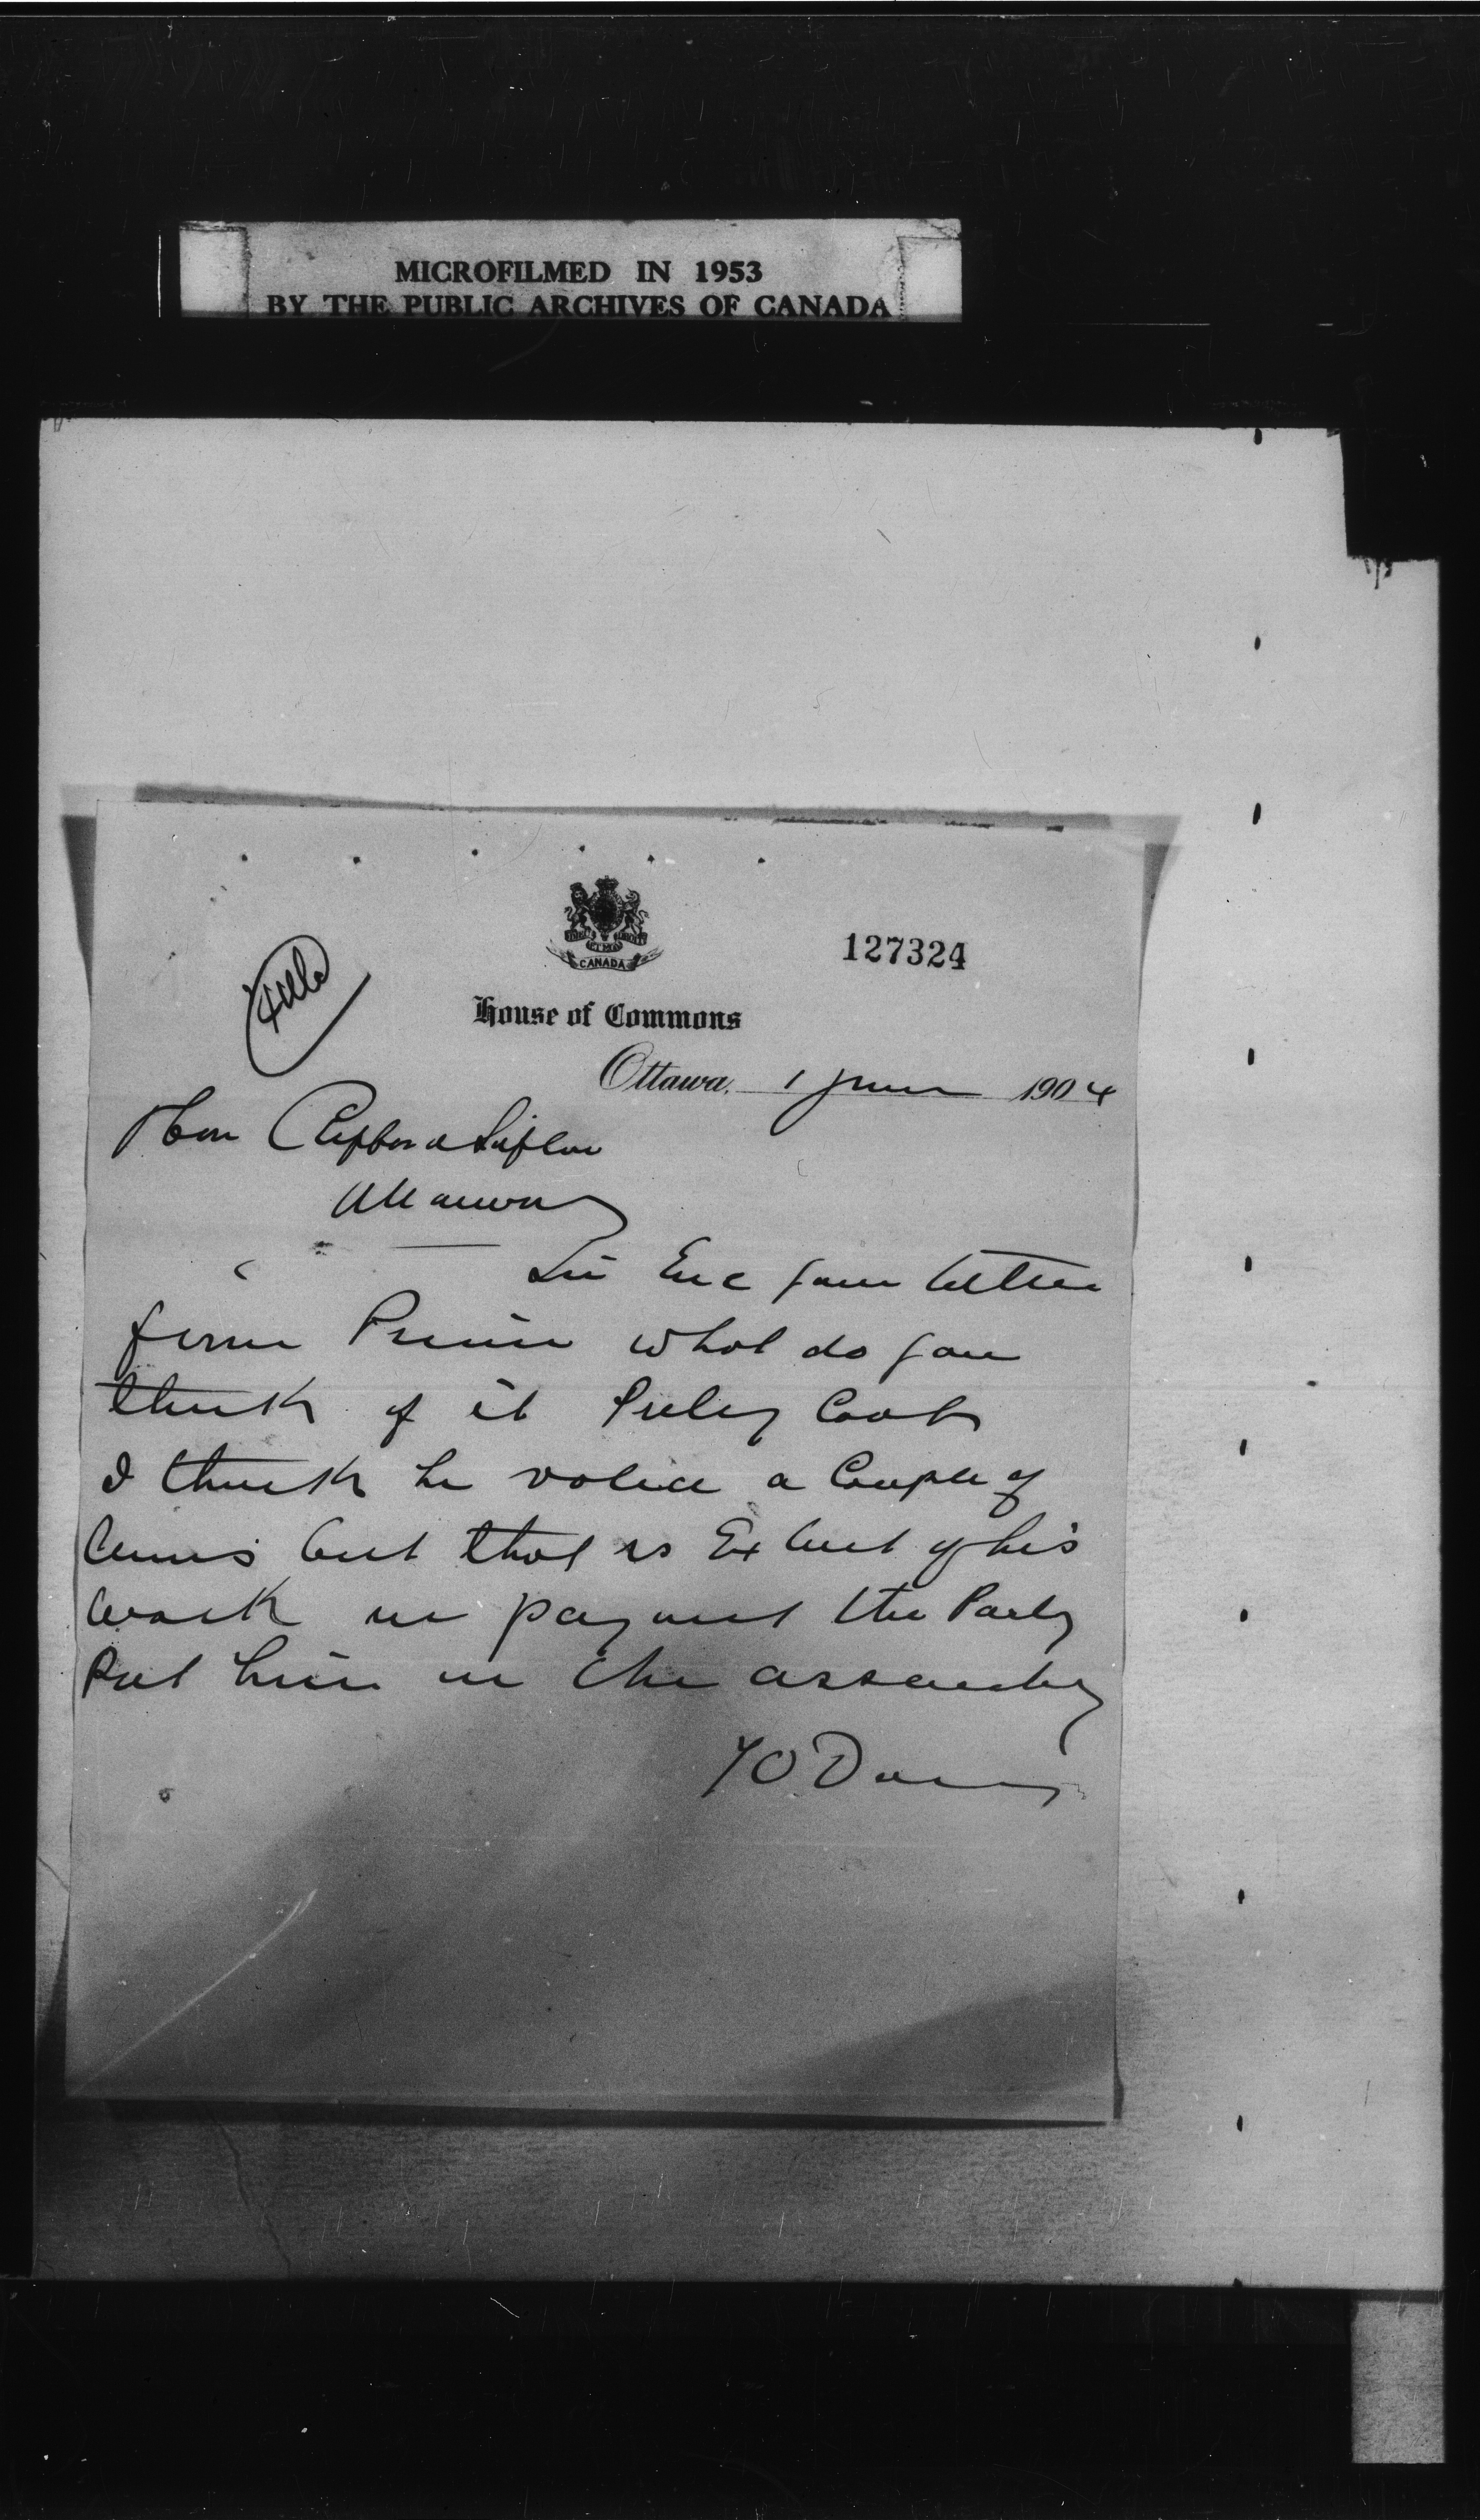 MICROFILMED IN 1953
BY THE PUBLIC ARCHIVES OF CANADA
CANADA
127324
House of Commons
Ottawa, 1 June 1904
Hon Clifford Sifton
Ottawa
Sir Enc you letter
from what do you
think of it Cool
I think he voted a Couple of
times but that is Extent of his
work in payment the Party
Put him in the assembly
T O Davis